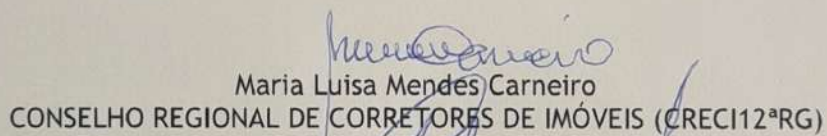 Maria Luisa Mendes Carneiro
CONSELHO REGIONAL DE CORRETORES DE IMÓVEIS (CRECI12ªRG)